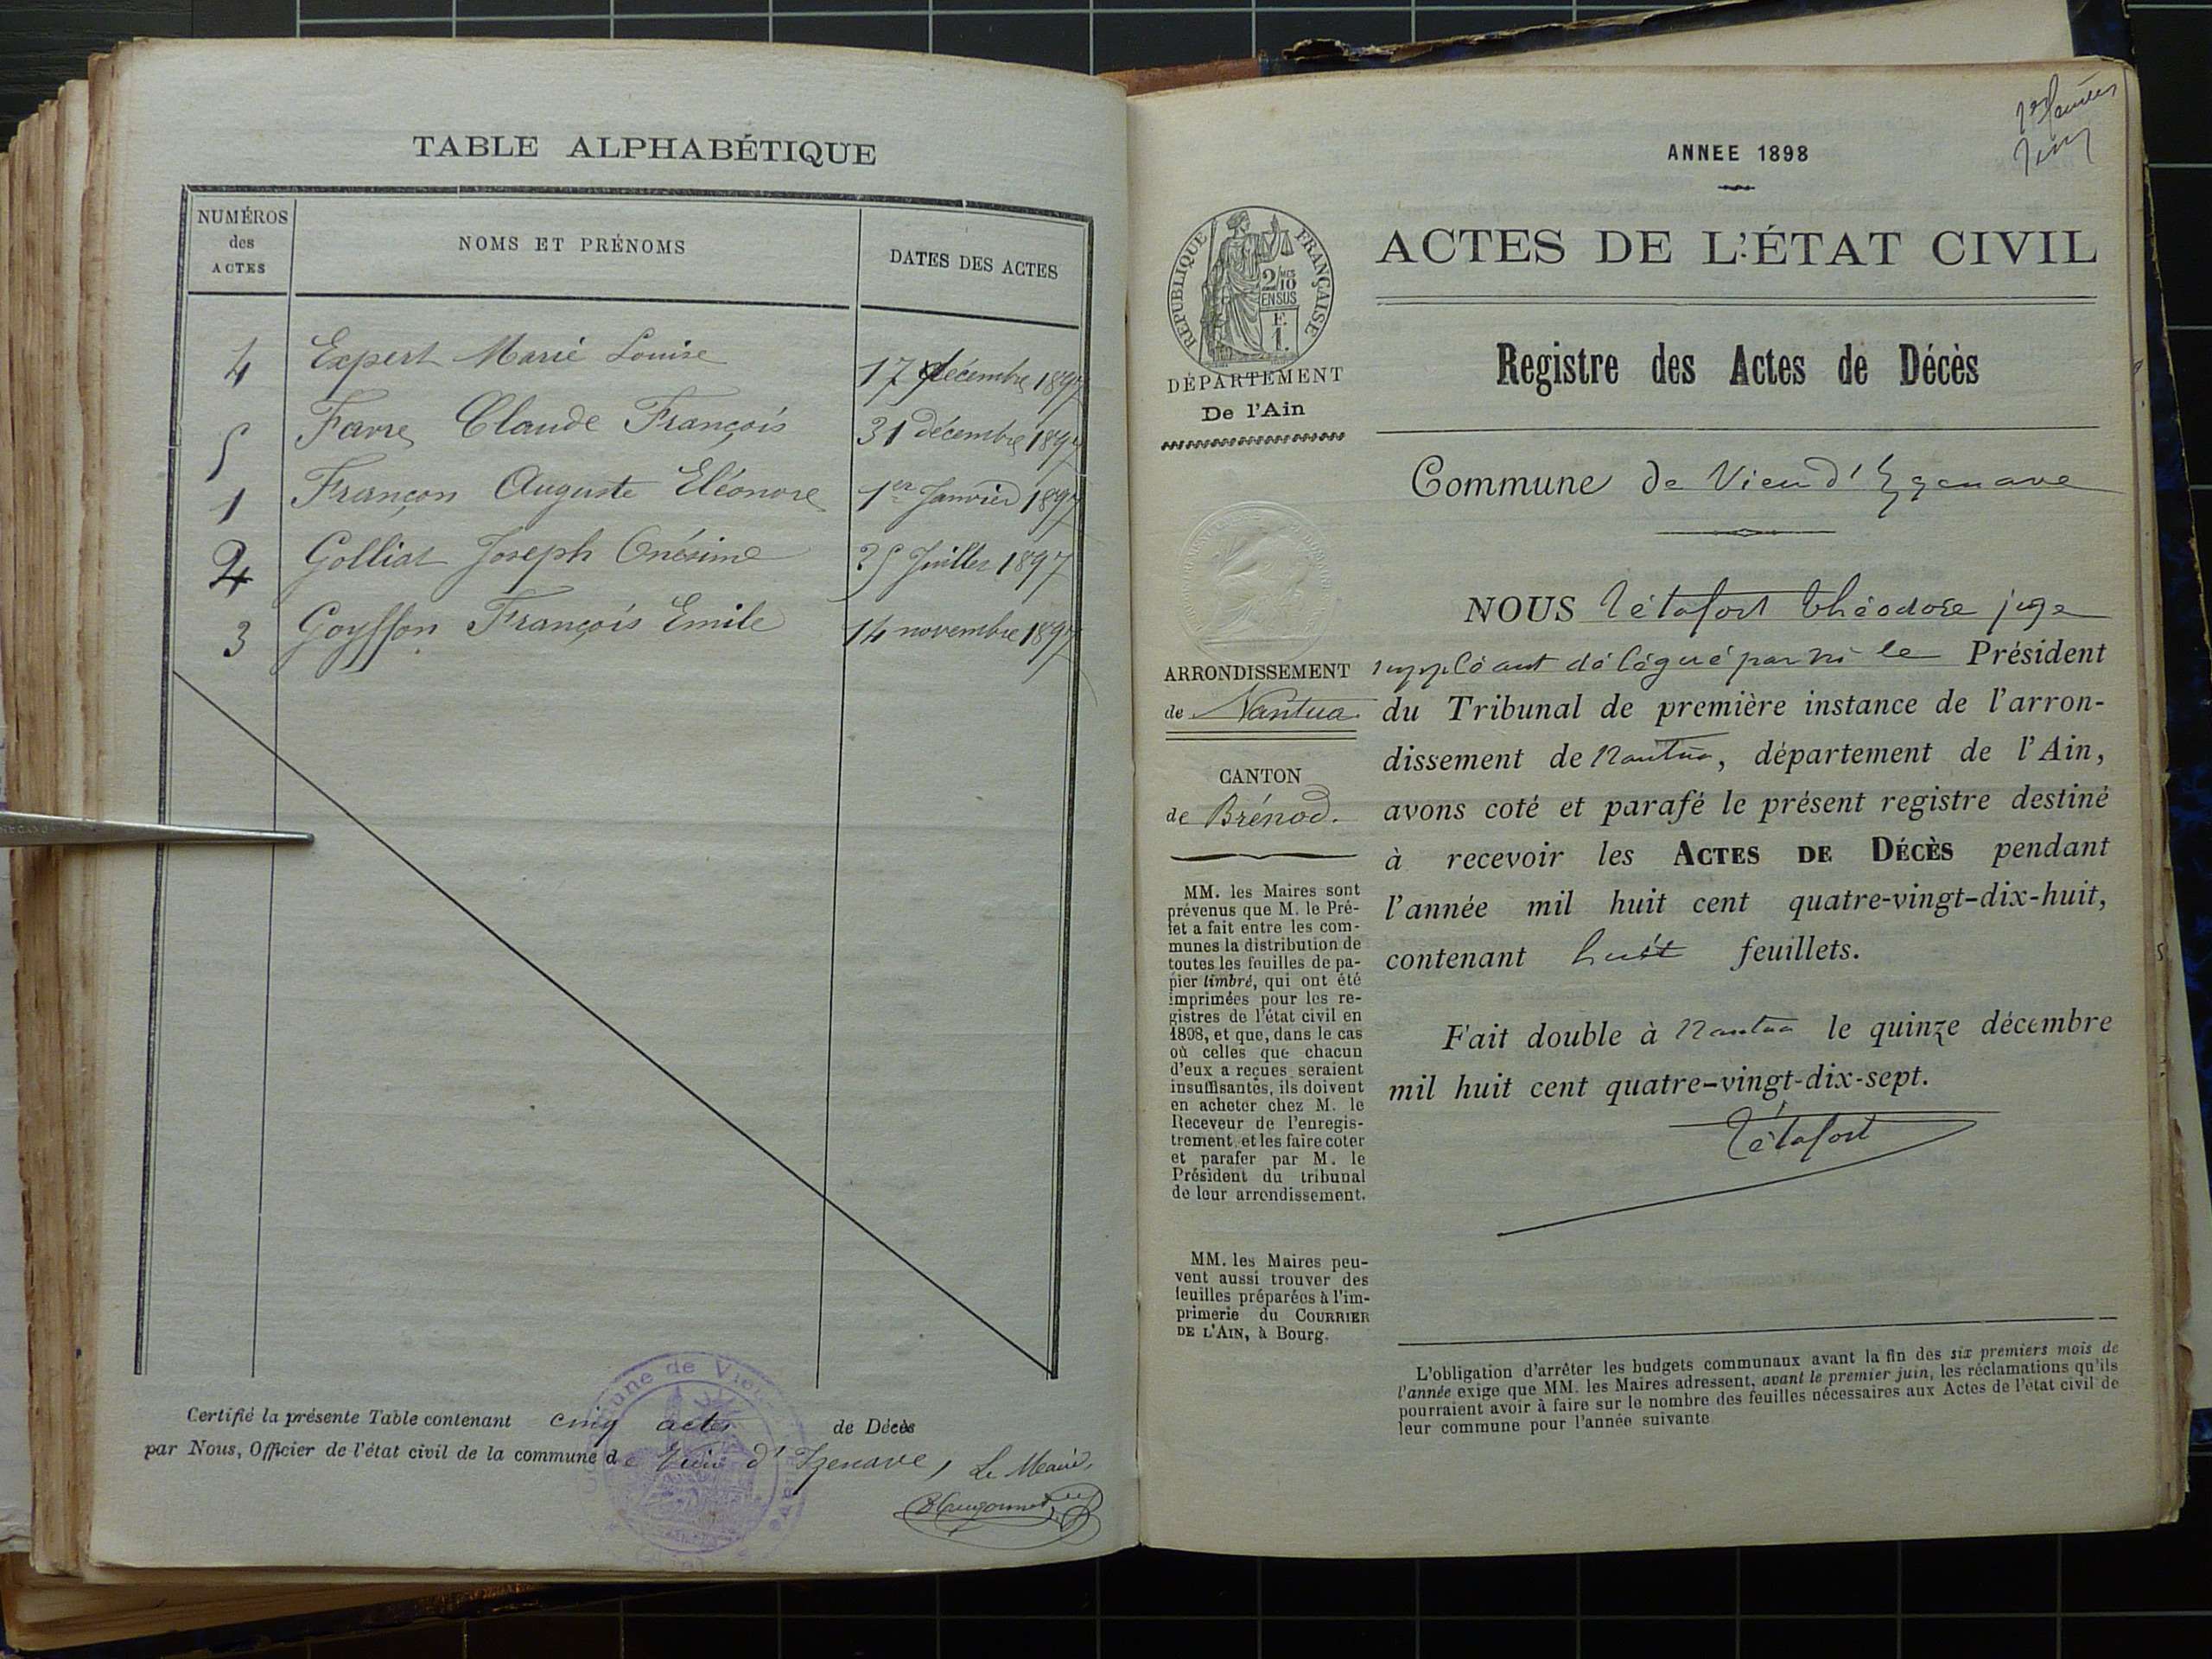 TABLE ALPHABÉTIQUE
NUMÉROS
des
ACTES
NOMS ET PRÉNOMS
DATES DES ACTES
4 Expert Marie Louise 17 décembre 1897
5 Favre Claude François 31 décembre 1897
1 Françon Auguste Eléonore 1er Janvier 1897
2 Golliat Joseph Onésime 25 Juillet 1897
3 Goyffon François Emile 14 novembre 1897
Certifié la présente Table contenant cinq actes de Décès
par Nous, Officier de l'état civil de la commune de Vieu d'Izenave, Le Maire,
ANNEE 1898
RÉPUBLIQUE FRANÇAISE
2/10
EN SUS
F.
1.
ACTES DE L'ÉTAT CIVIL
DÉPARTEMENT
De l'Ain
Registre des Actes de Décès
Commune de Vieu d'Izenave
NOUS Tétafort Théodore juge
suppléant délégué par Mr le Président
du Tribunal de première instance de l'arron-
dissement de Nantua, département de l'Ain,
avons coté et parafé le présent registre destiné
à recevoir les ACTES DE DÉCÈS pendant
l'année mil huit cent quatre-vingt-dix-huit,
contenant huit feuillets.
Fait double à Nantua le quinze décembre
mil huit cent quatre-vingt-dix-sept.
Tétafort
ARRONDISSEMENT
de Nantua
CANTON
de Brénod.
MM. les Maires sont
prévenus que M. le Pré-
fet a fait entre les com-
munes la distribution de
toutes les feuilles de pa-
pier timbré, qui ont été
imprimées pour les re-
gistres de l'état civil en
1898, et que, dans le cas
où celles que chacun
d'eux a reçues seraient
insuffisantes, ils doivent
en acheter chez M. le
Receveur de l'enregis-
trement, et les faire coter
et parafer par M. le
Président du tribunal
de leur arrondissement.
MM. les Maires peu-
vent aussi trouver des
feuilles préparées à l'im-
primerie du COURRIER
DE L'AIN, à Bourg.
L'obligation d'arrêter les budgets communaux avant la fin des six premiers mois de
l'année exige que MM. les Maires adressent, avant le premier juin, les réclamations qu'ils
pourraient avoir à faire sur le nombre des feuilles nécessaires aux Actes de l'état civil de
leur commune pour l'année suivante